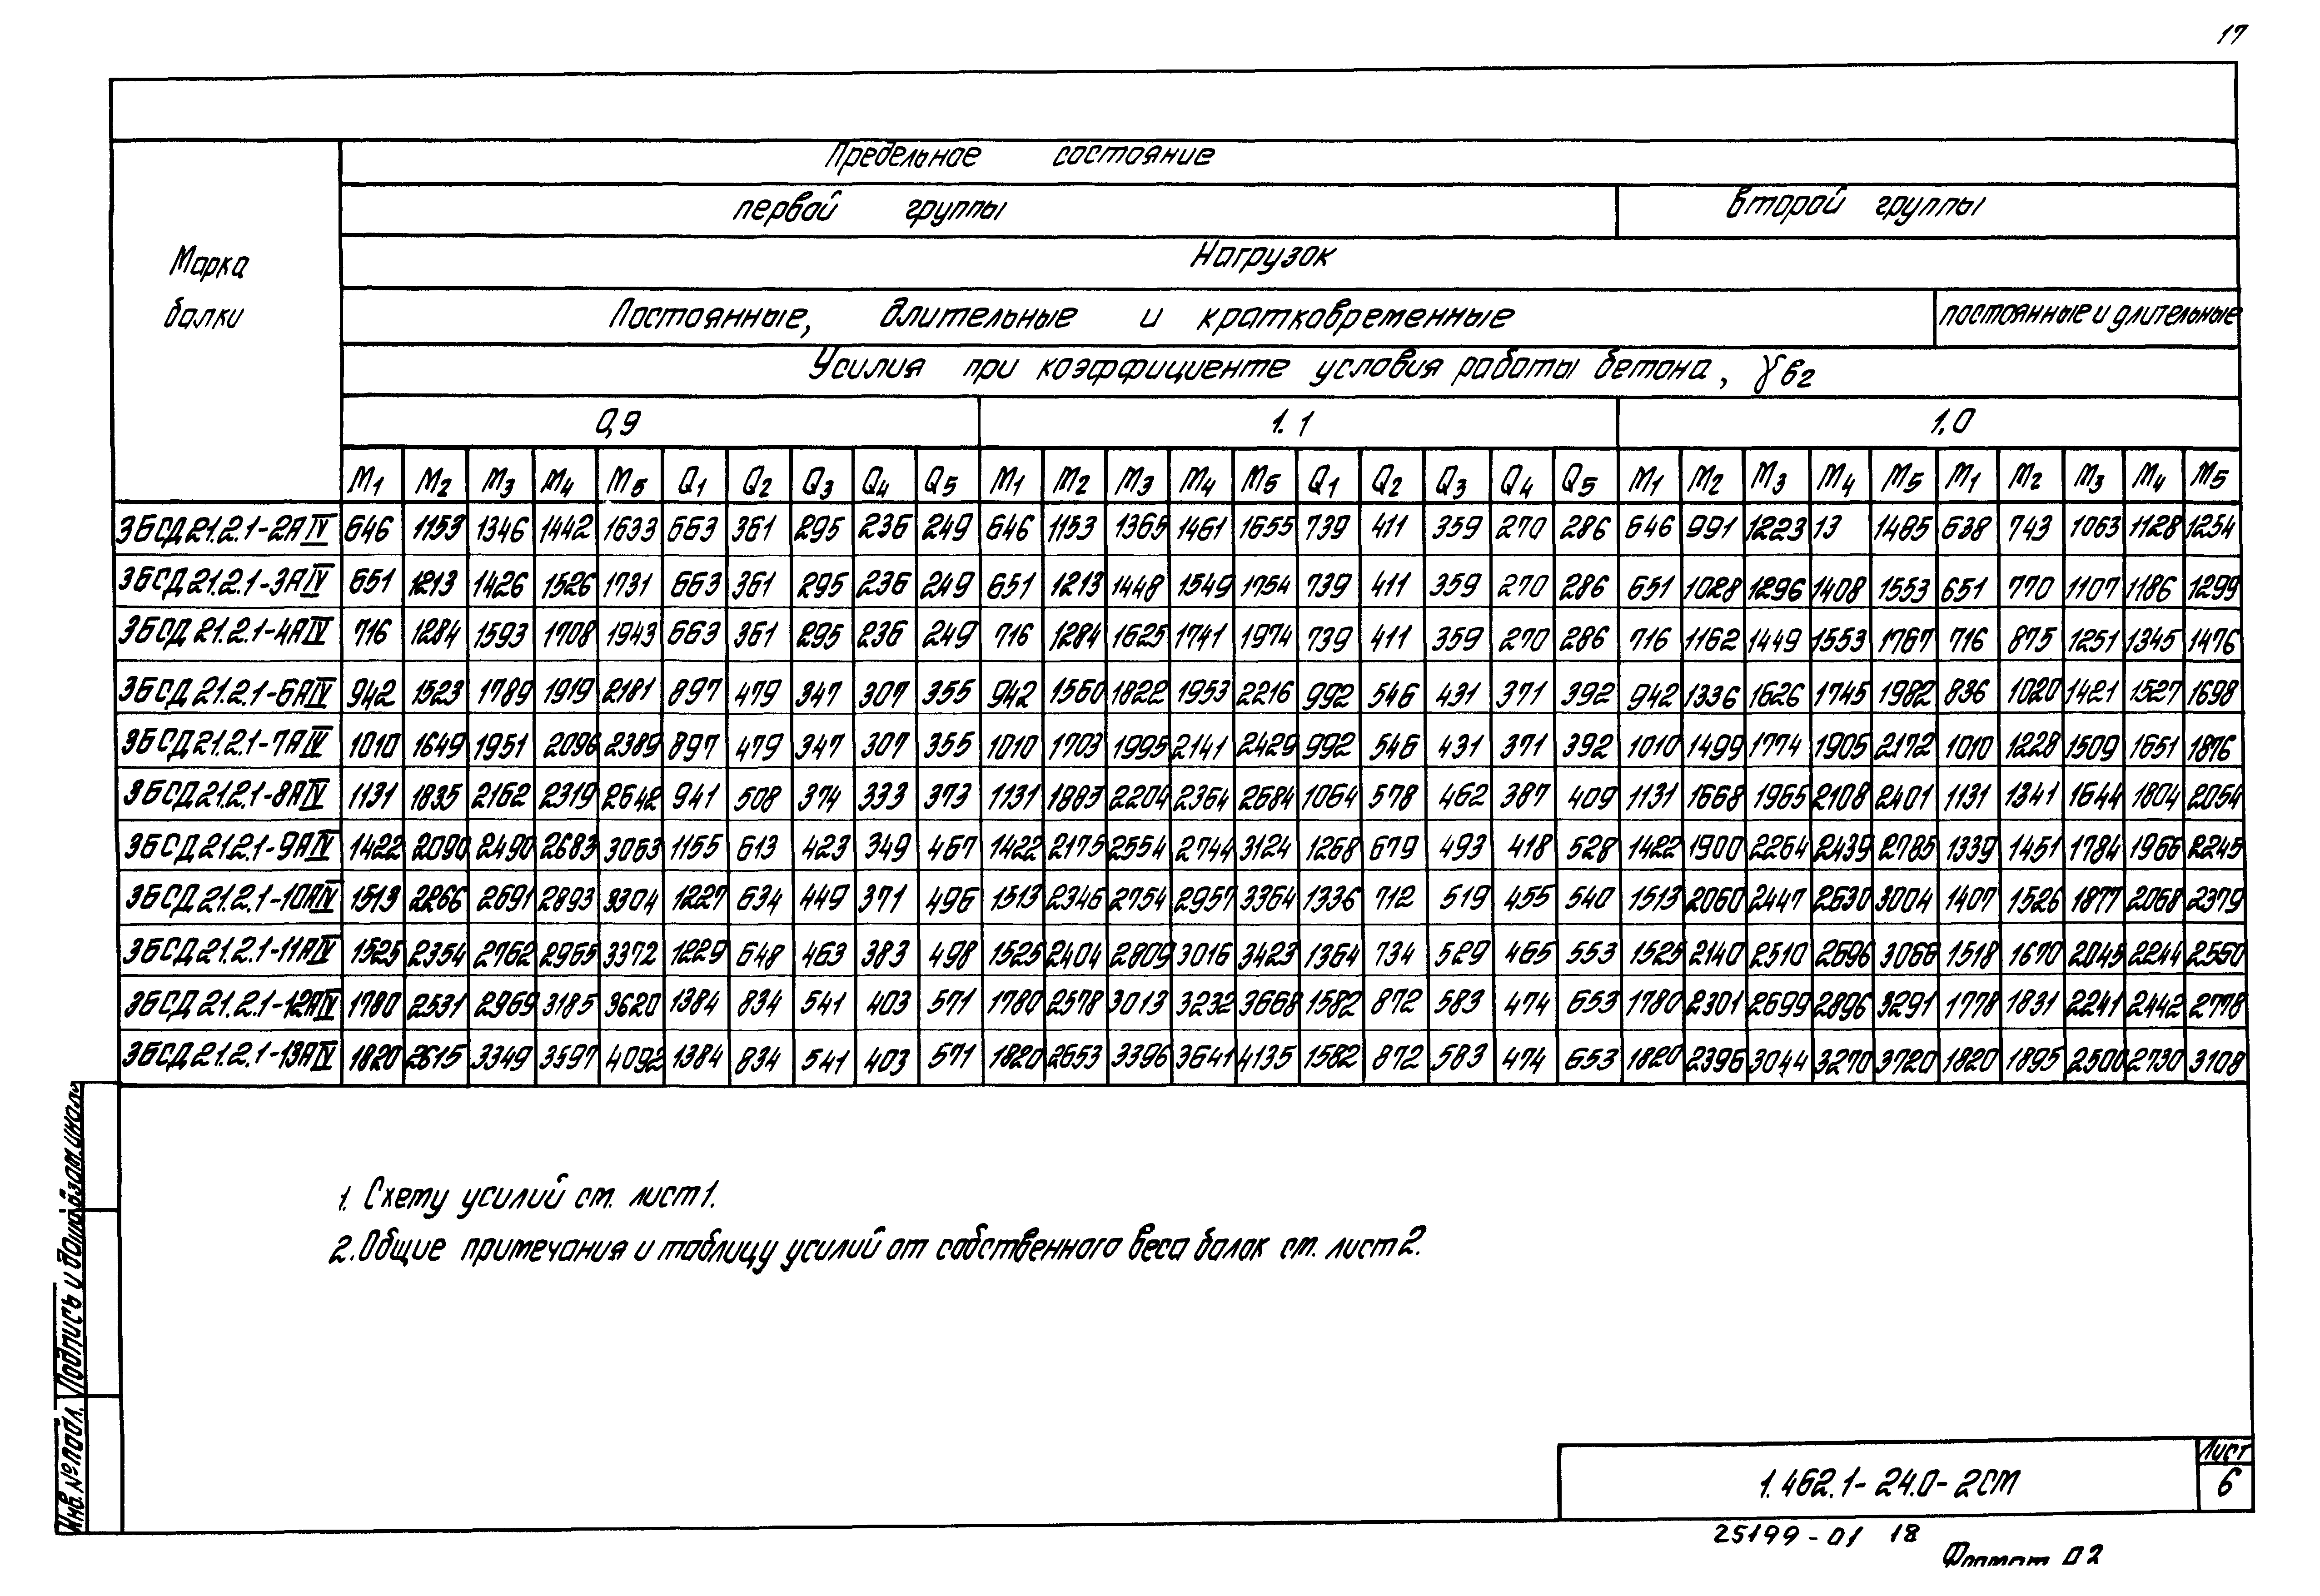 17
Предельное состояние
первой группы второй группы
Марка балки
Нагрузок
Постоянные, длительные и кратковременные постоянные и длительные
Усилия при коэффициенте условия работы бетона, γв2
0,9 1.1 1,0
M1 M2 M3 M4 M5 Q1 Q2 Q3 Q4 Q5 M1 M2 M3 M4 M5 Q1 Q2 Q3 Q4 Q5 M1 M2 M3 M4 M5 M1 M2 M3 M4 M5
3БСД21.2.1-2АIV 646 1153 1346 1442 1633 663 361 295 236 249 646 1153 1365 1461 1655 739 411 359 270 286 646 991 1223 13 1485 638 743 1063 1128 1254
3БСД21.2.1-3АIV 651 1213 1426 1526 1731 663 361 295 236 249 651 1213 1448 1549 1754 739 411 359 270 286 651 1028 1296 1408 1553 651 770 1107 1186 1299
3БСД21.2.1-4АIV 716 1284 1593 1708 1943 663 361 295 236 249 716 1284 1625 1741 1974 739 411 359 270 286 716 1162 1449 1553 1767 716 875 1251 1345 1476
3БСД21.2.1-6АIV 942 1523 1789 1919 2181 897 479 347 307 355 942 1560 1822 1953 2216 992 546 431 371 392 942 1336 1626 1745 1982 836 1020 1421 1527 1698
3БСД21.2.1-7АIV 1010 1649 1951 2096 2389 897 479 347 307 355 1010 1703 1995 2141 2429 992 546 431 371 392 1010 1499 1774 1905 2172 1010 1228 1509 1651 1876
3БСД21.2.1-8АIV 1131 1835 2162 2319 2642 941 508 374 333 373 1131 1883 2204 2364 2684 1064 578 462 387 409 1131 1668 1965 2108 2401 1131 1341 1644 1804 2054
3БСД21.2.1-9АIV 1422 2090 2490 2683 3063 1155 613 423 349 467 1422 2175 2554 2744 3124 1268 679 493 418 528 1422 1900 2264 2439 2785 1339 1451 1784 1966 2245
3БСД21.2.1-10АIV 1513 2266 2691 2893 3304 1227 634 449 371 496 1513 2346 2754 2957 3364 1336 712 519 455 540 1513 2060 2447 2630 3004 1407 1526 1877 2068 2379
3БСД21.2.1-11АIV 1525 2354 2762 2965 3372 1229 648 463 383 498 1525 2404 2809 3016 3423 1364 734 529 465 553 1525 2140 2510 2696 3066 1518 1670 2045 2244 2560
3БСД21.2.1-12АIV 1780 2531 2969 3185 3620 1384 834 541 403 571 1780 2578 3013 3232 3668 1582 872 583 474 653 1780 2301 2699 2896 3291 1778 1831 2241 2442 2778
3БСД21.2.1-13АIV 1820 2615 3349 3597 4092 1384 834 541 403 571 1820 2653 3396 3641 4135 1582 872 583 474 653 1820 2396 3044 3270 3720 1820 1895 2500 2730 3108
1. Схему усилий ст. лист1.
2. Общие примечания и таблицу усилий от собственного веса балок ст. лист2.
Инв. № подл. Подпись и дата
1.462.1-24.0-2СМ
Лист
6
25199-01 18
Формат